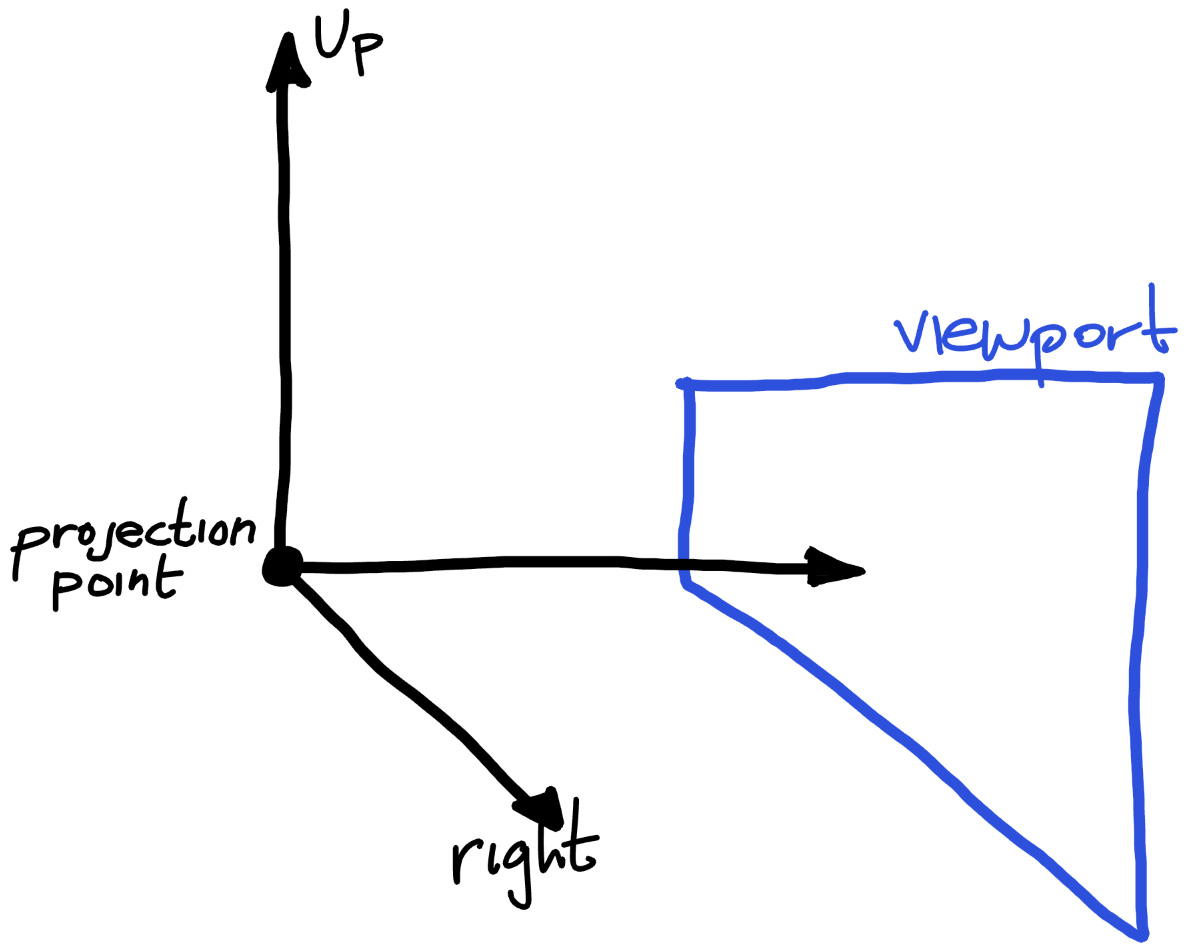 Up
viewport
projection
point
right